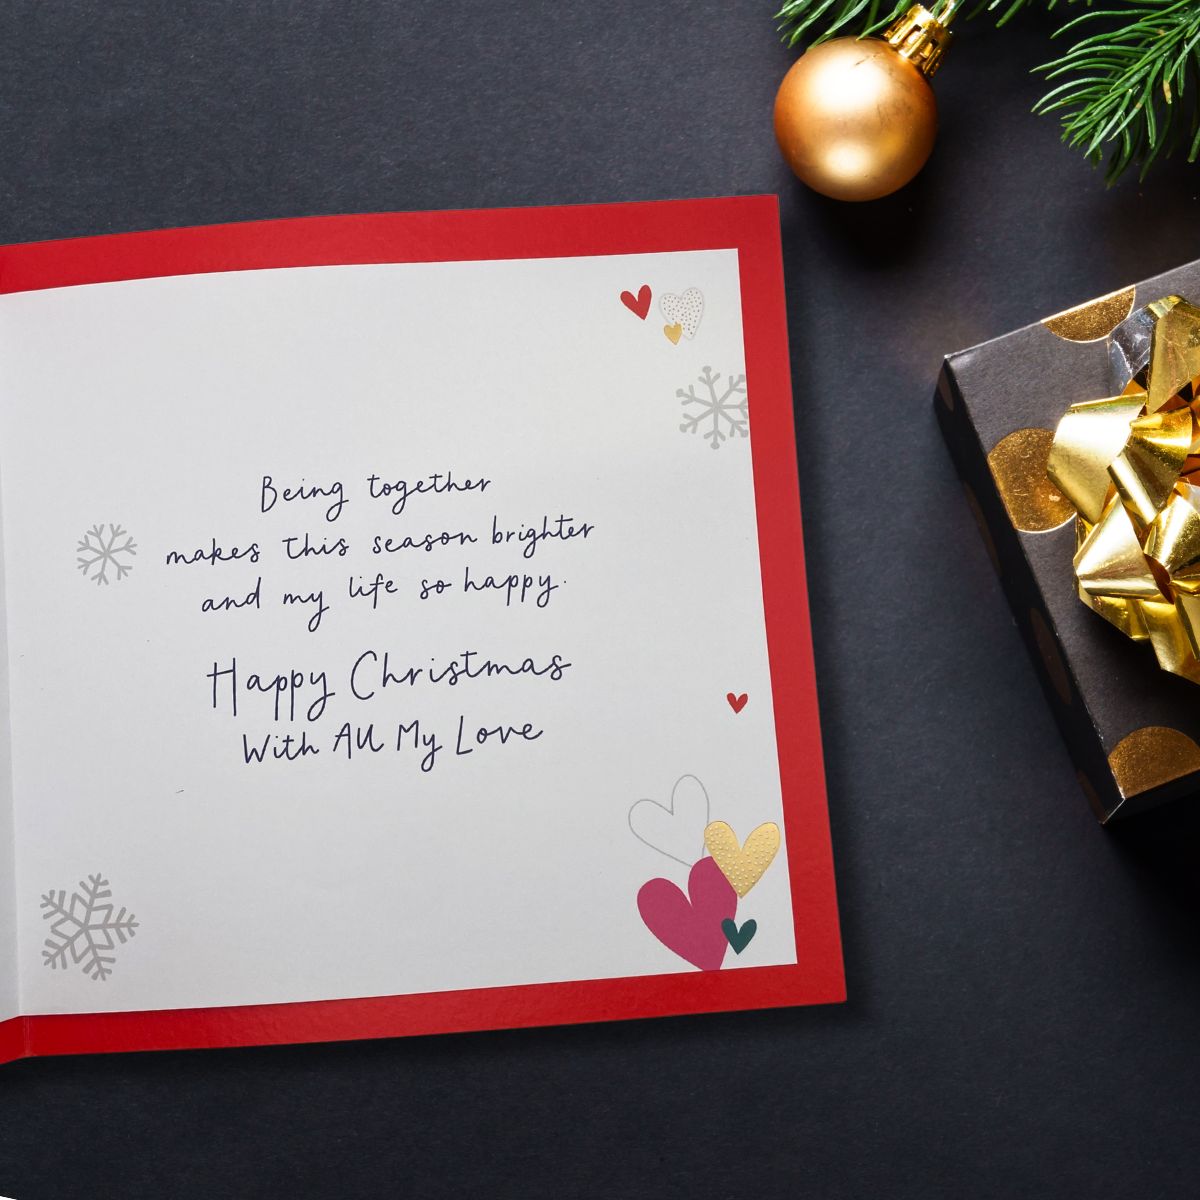 Being together
makes this season brighter
and my life so happy.
Happy Christmas
With All My Love